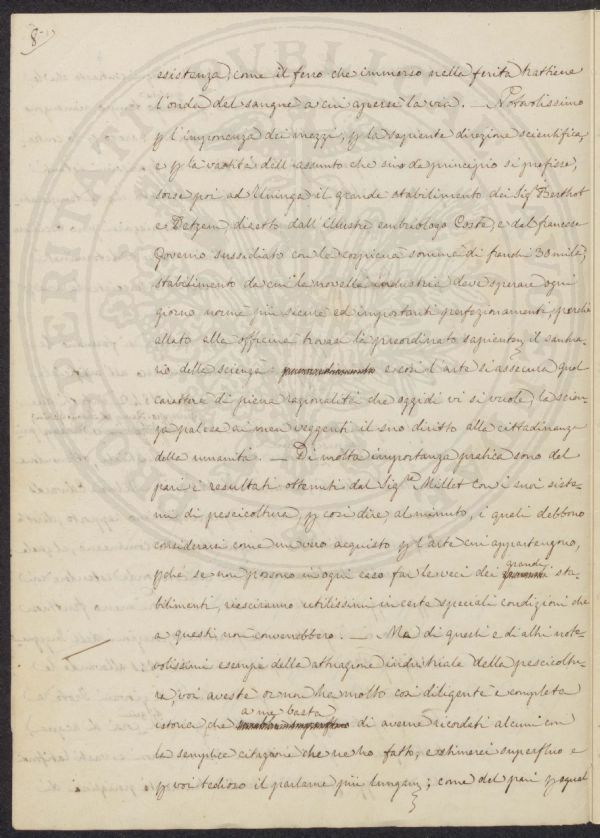 8
esistenza, come il ferro che immerso nella ferita trattiene
l'onda del sangue a cui aperse la via. — Notevolissimo
p l'imponenza dei mezzi, p la sapiente direzione scientifica,
e p la vastità dell'assunto che sino da principio si prefisse,
sorse poi ad Uninga il grande stabilimento dei Sigi Berthot
e Detzem diretto dall'illustre embriologo Coste, e dal francese
Governo sussidiato con la cospicua somma di franchi 30 mila,
stabilimento da cui la novella industria deve sperare ogni
giorno norme più sicure ed importanti perfezionamenti, perchè
allato alla officina trovasi là preordinato sapientem. il santua-
rio della scienza: e così l'arte si assecura quel
carattere di piena razionalità che oggidì vi si vuole, la scien-
za palesa ai men veggenti il suo diritto alla cittadinanza
della umanità. — Di molta importanza pratica sono del
pari i resultati ottenuti dal Sigre Millet con i suoi siste-
mi di pescicoltura, p così dire, al minuto, i quali debbono
considerarsi come un vero acquisto p l'arte cui appartengono,
pchè se non possono in ogni caso far le veci dei grandi sta-
bilimenti, riesciranno utilissimi in certe speciali condizioni che
a questi non converrebbero. — Ma di questi e di altri note-
volissimi esempi della attuazione industriale della pescicoltu-
ra, voi aveste or non ha molto così diligente e completa
istoria, che a me basta di averne ricordati alcuni con
la semplice citazione che ne ho fatto, e stimerei superfluo e
p voi tedioso il parlarne più lungam.; come del pari p equal